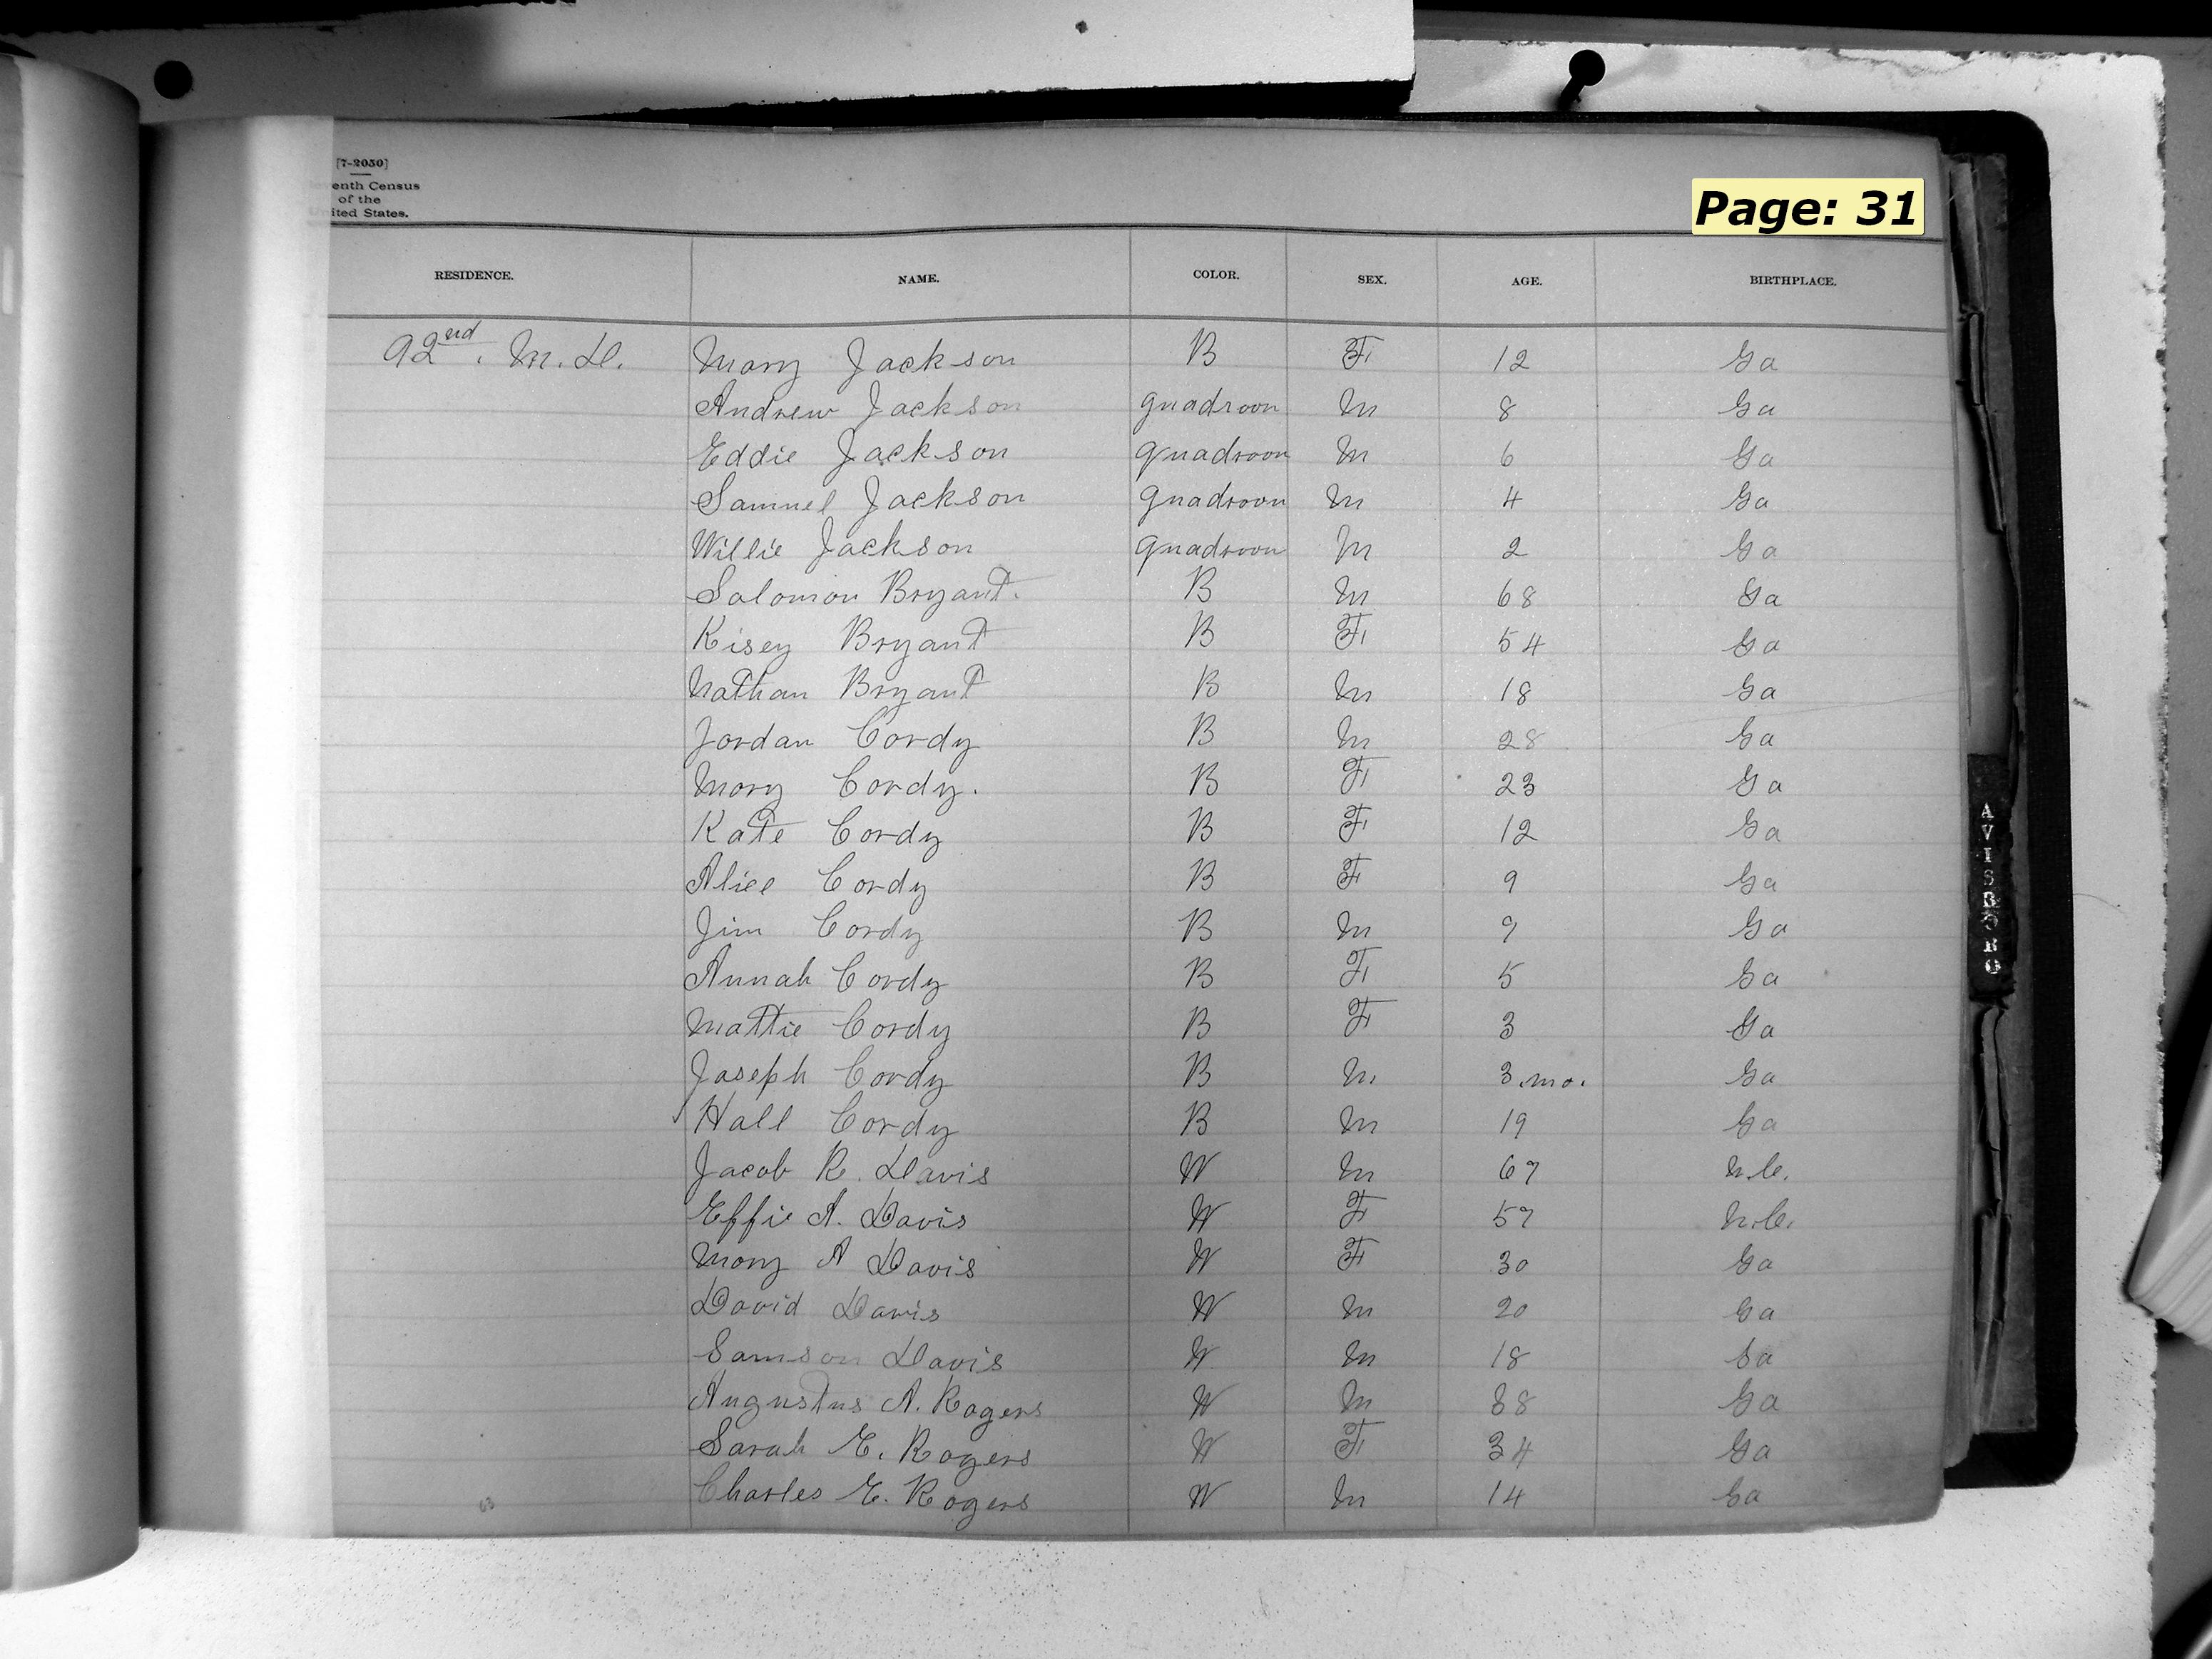 [7-2050]
enth Census
of the
United States.
Page: 31
RESIDENCE. NAME. COLOR. SEX. AGE. BIRTHPLACE.
92nd. M.D. Mary Jackson B F 12 Ga
Andrew Jackson quadroon M 8 Ga
Eddie Jackson quadroon M 6 Ga
Samuel Jackson quadroon M 4 Ga
Willie Jackson quadroon M 2 Ga
Solomon Bryant. B M 68 Ga
Kisey Bryant B F 54 Ga
Nathan Bryant B M 18 Ga
Jordan Cordy B M 28 Ga
Mary Cordy. B F 23 Ga
Kate Cordy B F 12 Ga
Alice Cordy B F 9 Ga
Jim Cordy B M 7 Ga
Annah Cordy B F 5 Ga
Mattie Cordy B F 3 Ga
Joseph Cordy B M 3.mo. Ga
Hall Cordy B M 19 Ga
Jacob R. Davis W M 67 N.C.
Effie A. Davis W F 57 N.C.
Mary A Davis W F 30 Ga
David Davis W M 20 Ga
Samson Davis W M 18 Ga
Augustus A. Rogers W M 38 Ga
Sarah E. Rogers W F 34 Ga
Charles E. Rogers W M 14 Ga
63
AVISBORO